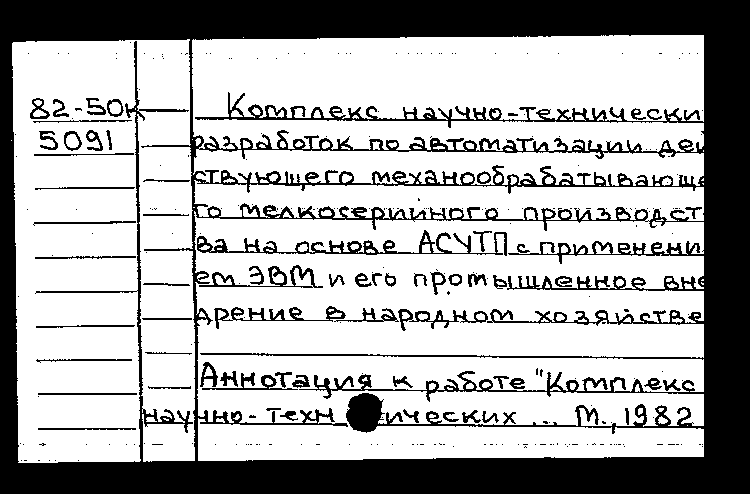 82-50к Комплекс научно-технически
5091 разработок по автоматизации дей
ствующего механообрабатывающе
го мелкосерийного производст
ва на основе АСУТП с применени
ем ЭВМ и его промышленное вне
дрение в народном хозяйстве
Аннотация к работе "Комплекс
научно-технических ... М., 1982